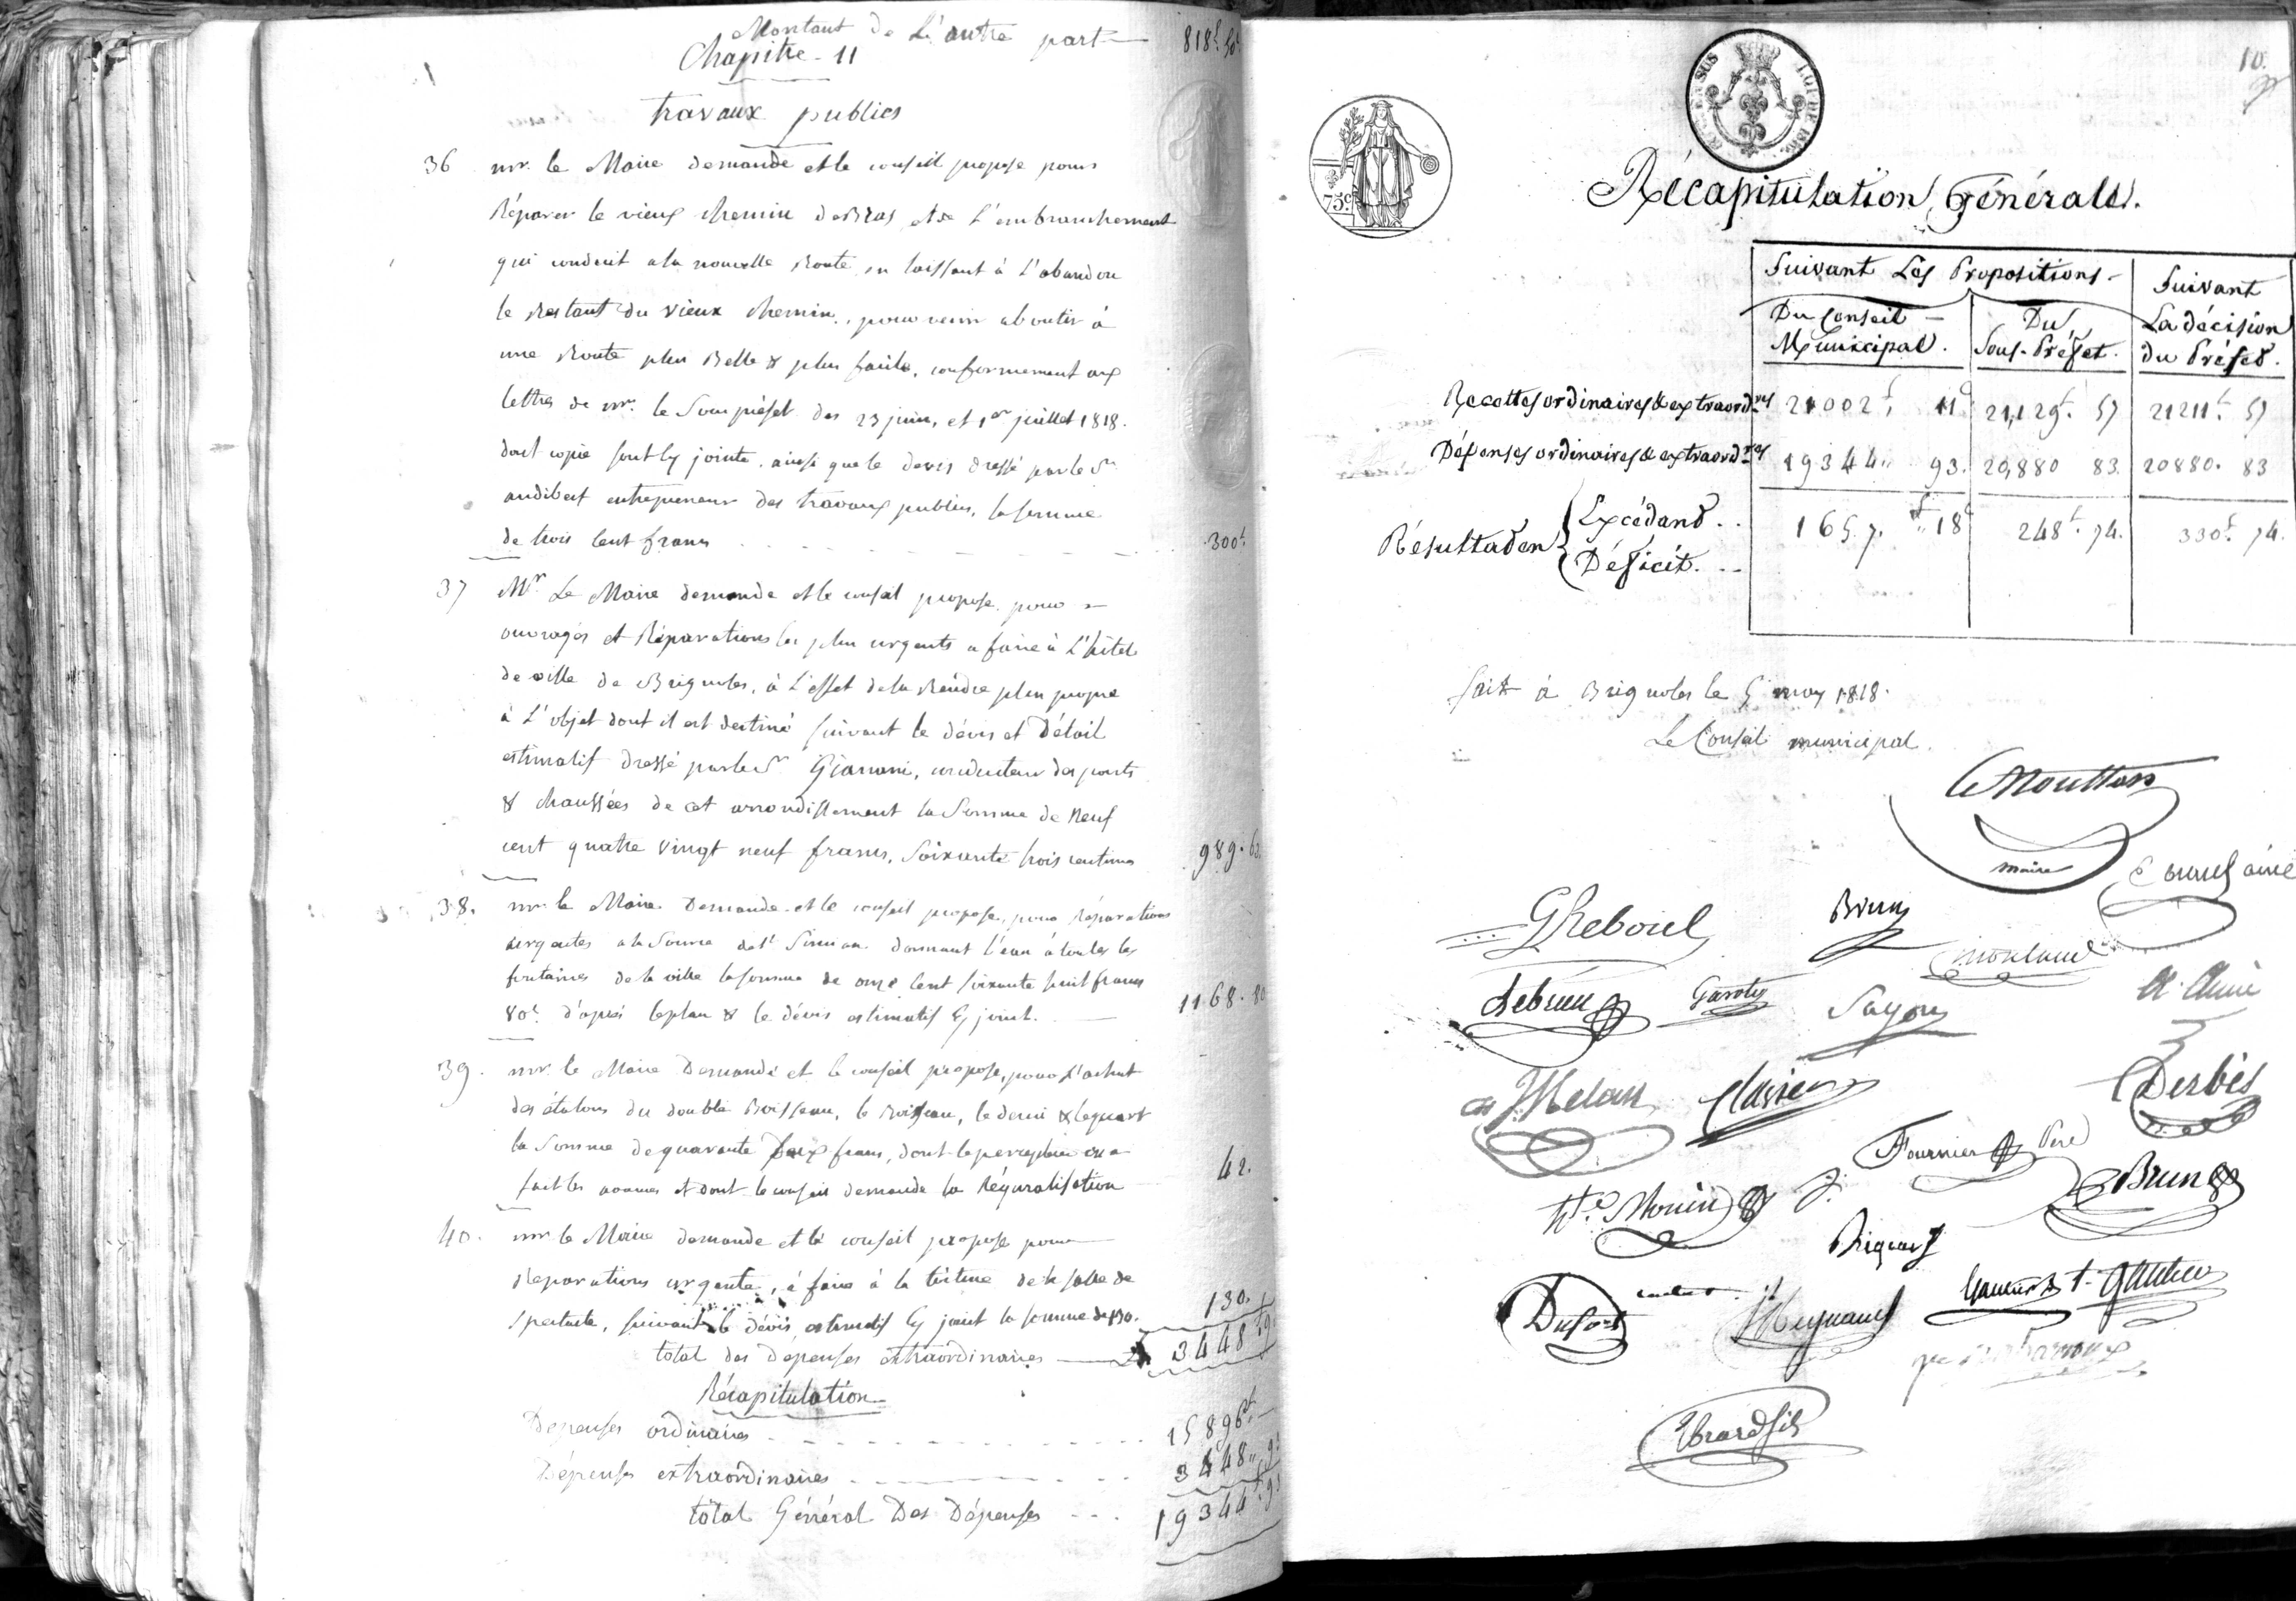 Montant de L'autre part 818f. 50c
Chapitre 11
travaux publics
36 mr. le Maire demande et le conseil propose pour
Réparer le vieux chemin de Bras et de L'embranchement
qui conduit a la nouvelle Route en laissant à L'abandon
le Restant du vieux chemin, pour venir aboutir à
une Route plus Belle & plus facile, conformement aux
lettres de mr. le Souspréfet des 23 juin, et 1er juillet 1818.
dont copie sont cy jointe, ainsi que le devis dressé par le Sr
audibert entrepreneur des travaux publics, la somme
de trois Cent francs 300f.
37 Mr Le Maire demande et le conseil propose pour
ouvrages et Réparations les plus urgents a faire à L'hôtel
de ville de Brignoles, à L'effet de la Rendre plus propre
à L'objet dont il est destiné suivant le dévis et Détail
estimatif dressé par le Sr Gianoni, conducteur des ponts
& chaussées de cet arrondissement la Somme de Neuf
cent quatre vingt neuf francs, Soixante trois centimes 989. 63
38. mr. le Maire Demande et le conseil propose, pour Réparations
urgentes a la Source de St Simian donnant l'eau à toutes les
fontaines de la ville la somme de onze Cent soixante huit francs
80c. d'après le plan & le dévis estimatif cy joint. 1168. 80
39. mr. le Maire Demande et le conseil propose, pour L'achat
des étalons du double Boisseau, le Boisseau, le demi & le quart
la Somme de quarante deux francs, dont le percepteur en a
fait les avances et dont le conseil demande la Régularisation 42.
40. mr. le Maire demande et le conseil propose pour
Reparations urgente, à faire à la toiture de la salle de
spectacle, suivant le dévis estimatif cy joint la somme de 130. 130.
total des depenses extraordinaires 3448 93
Récapitulation
Depenses ordinaires 15896f
Dépenses extraordinaires 3448 93
total Général Des Dépenses 19344 93
10.
75c
Récapitulation Générale.
Suivant Les Propositions
Suivant
La décision
du Préfet.
Du Conseil
Municipal.
Du
Sous-Préfet.
Recettes ordinaires & extraordres 21002f, 11c 21,129f. 57 21211f. 57
Dépenses ordinaires & extraordres 19344 93. 20,880 83. 20880. 83
Résultat en { Excédant . . 1657. 18c 248f. 74. 330f. 74.
Déficit. . .
fait à Brignoles le 5 may 1818.
Le Conseil municipal.
Moutton
maire
ainé
G Reboul
Brun
Lebrun
Garoty
Sayou
Melan
Clavier
Derbès
Fournier Pere
Brun
Monin
Dufort
Meynard
Gautier
Ebrard fils